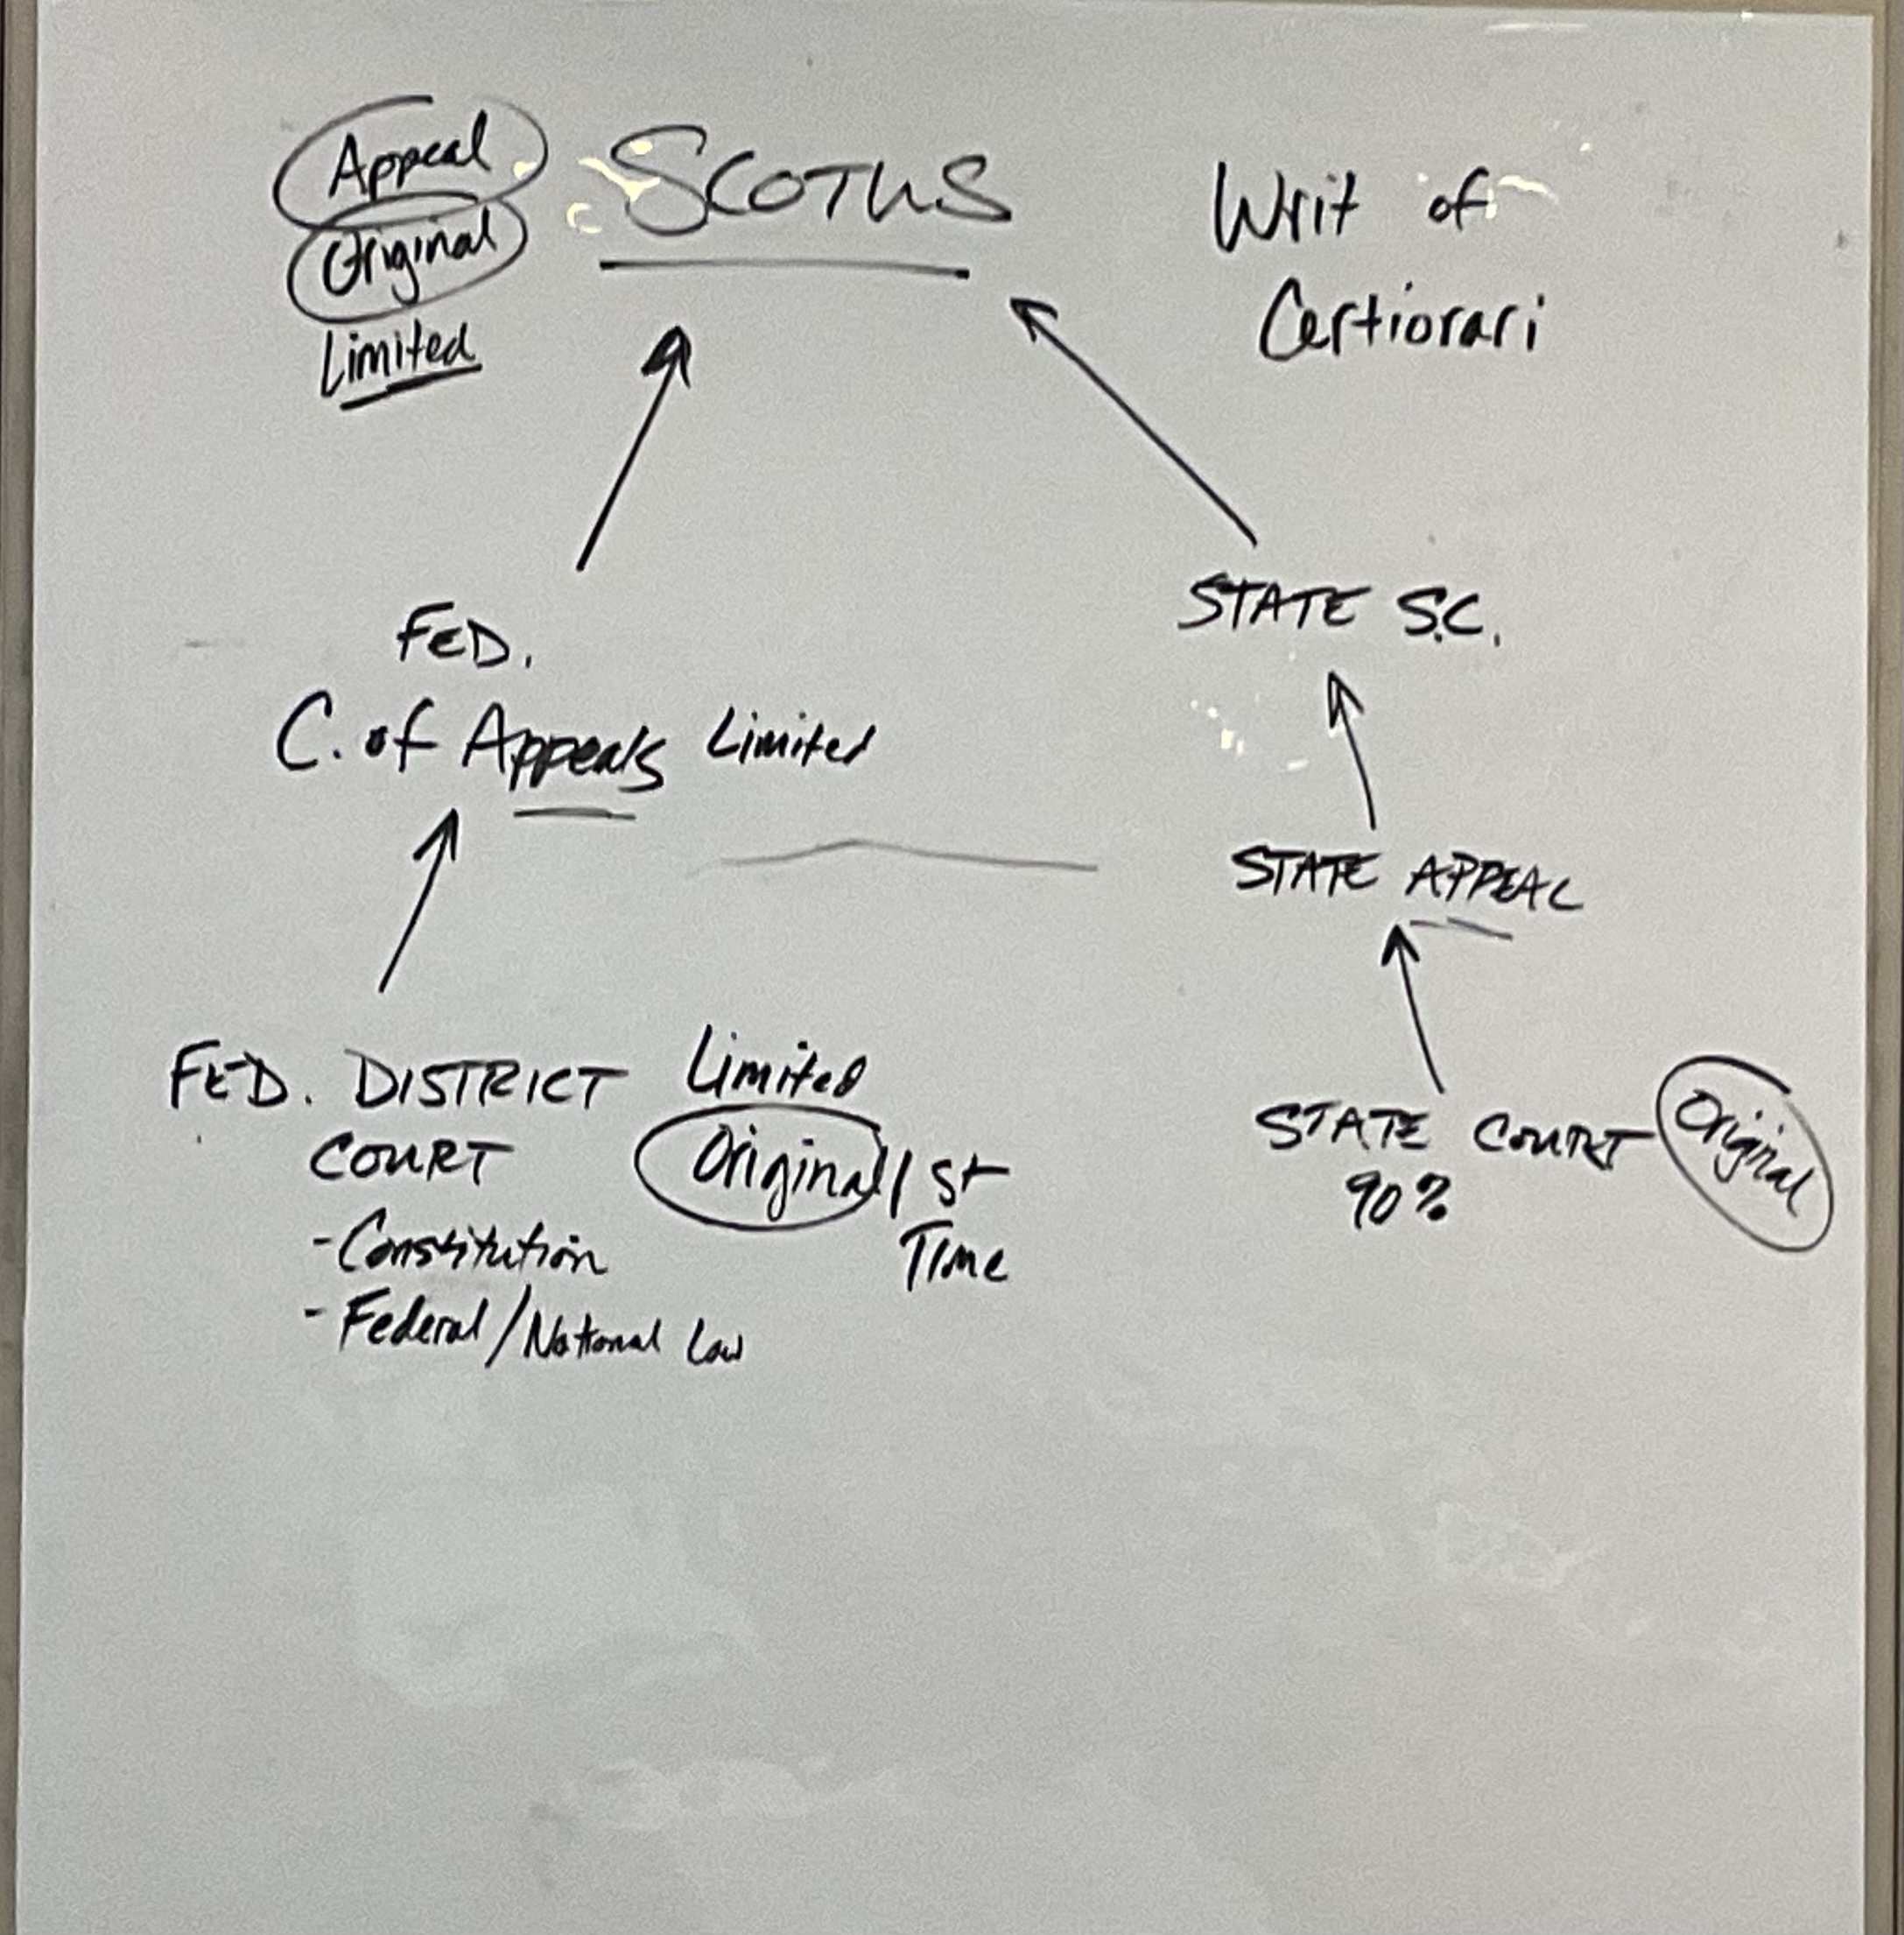 Appeal
Original
Limited
SCOTUS
Writ of
Certiorari
FED.
C. of Appeals Limited
STATE S.C.
STATE APPEAL
FED. DISTRICT
COURT
Limited
Original/1st
Time
- Constitution
- Federal/National Law
STATE COURT Original
90%